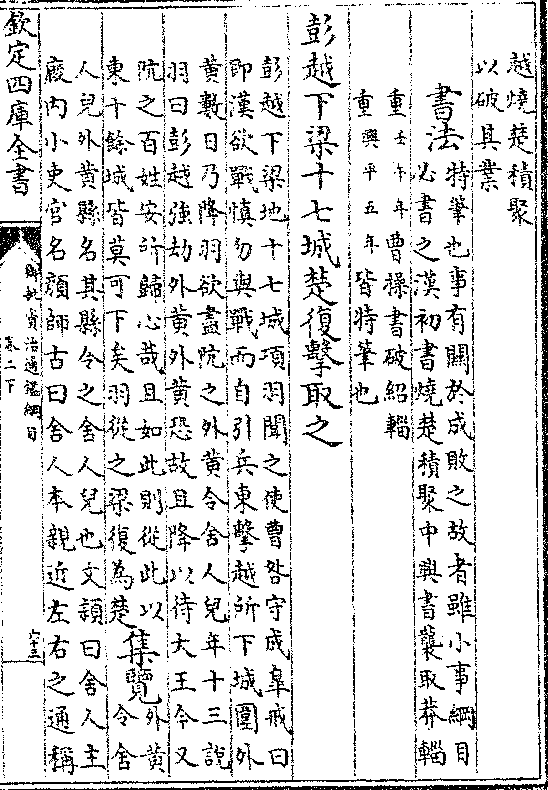 越燒楚積聚
以破其業
書法
特筆也事有關於成敗之故者雖小事綱目
必書之漢初書燒楚積聚中興書襲取莽輜
重壬午年曹操書破紹輜
重興平五年皆特筆也
彭越下梁十七城楚復擊取之
彭越下梁地十七城項羽聞之使曹咎守成臯戒曰
即漢欲戰慎勿與戰而自引兵東擊越所下城圍外
黄數日乃降羽欲盡阬之外黄令舍人兒年十三說
羽曰彭越強劫外黄外黄恐故且降以待大王今又
阬之百姓安所歸心哉且如此則從此以
東十餘城皆莫可下矣羽從之梁復為楚
集覽
外黄
令舍
人兒外黄縣名其縣令之舍人兒也文頴曰舍人主
廄内小吏官名顔師古曰舍人本親近左右之通稱
欽定四庫全書
御批資治通鑑綱目
卷二下
六十三